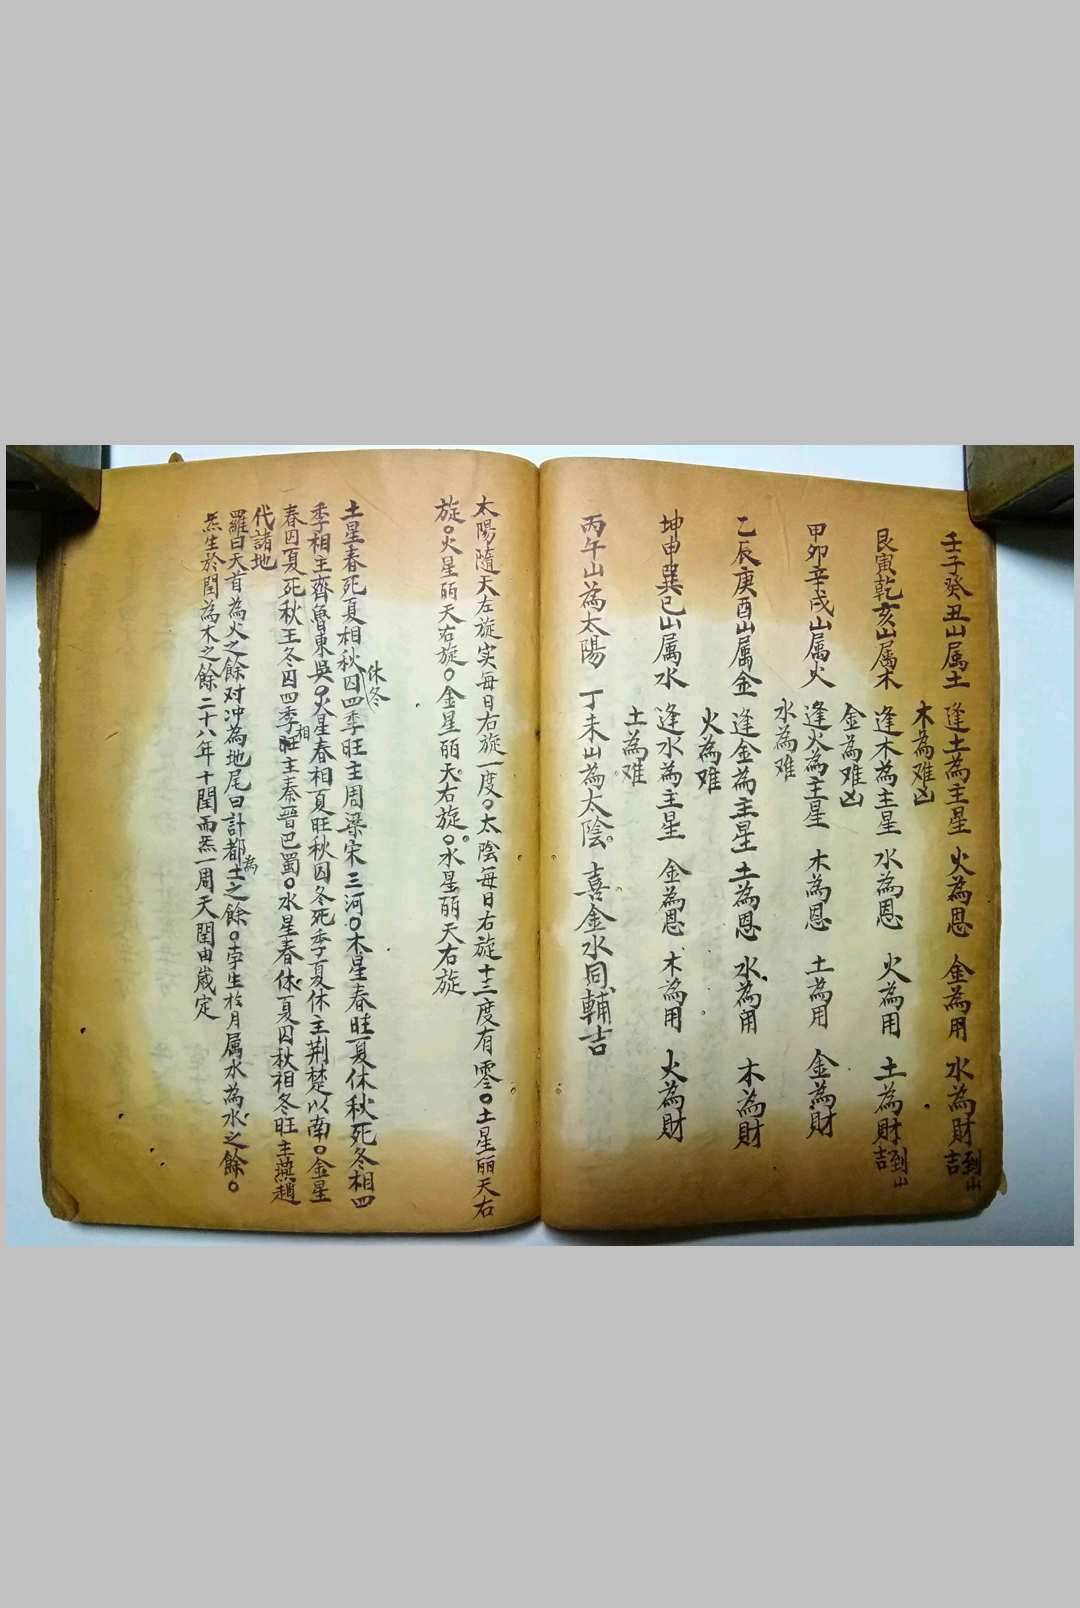 壬子癸丑山属土 逢土為主星 火為恩 金為用 水為財 到山吉
木為难凶
艮寅乾亥山属木 逢木為主星 水為恩 火為用 土為財 到山吉
金為难凶
甲卯辛戌山属火 逢火為主星 木為恩 土為用 金為財
水為难
乙辰庚酉山属金 逢金為主星 土為恩 水為用 木為財
火為难
坤申巽巳山属水 逢水為主星 金為恩 木為用 火為財
土為难
丙午山為太陽 丁未山為太陰。喜金水同輔吉
太陽隨天左旋实每日右旋一度。太陰每日右旋十三度有零。土星丽天右
旋。火星丽天右旋。金星丽天右旋。水星丽天右旋
土星春死夏相秋休冬囚四季旺主周梁宋三河。木星春旺夏休秋死冬相四
季相主齊魯東吳。火星春相夏旺秋囚冬死季夏休主荆楚以南。金星
春囚夏死秋王冬囚四季相旺主秦晉巴蜀。水星春休夏囚秋相冬旺主燕趙
代諸地
羅曰天首為火之餘对冲為地尾曰計都為土之餘。孛生於月属水為水之餘。
炁生於閏為木之餘二十八年十閏而炁一周天閏由歲定